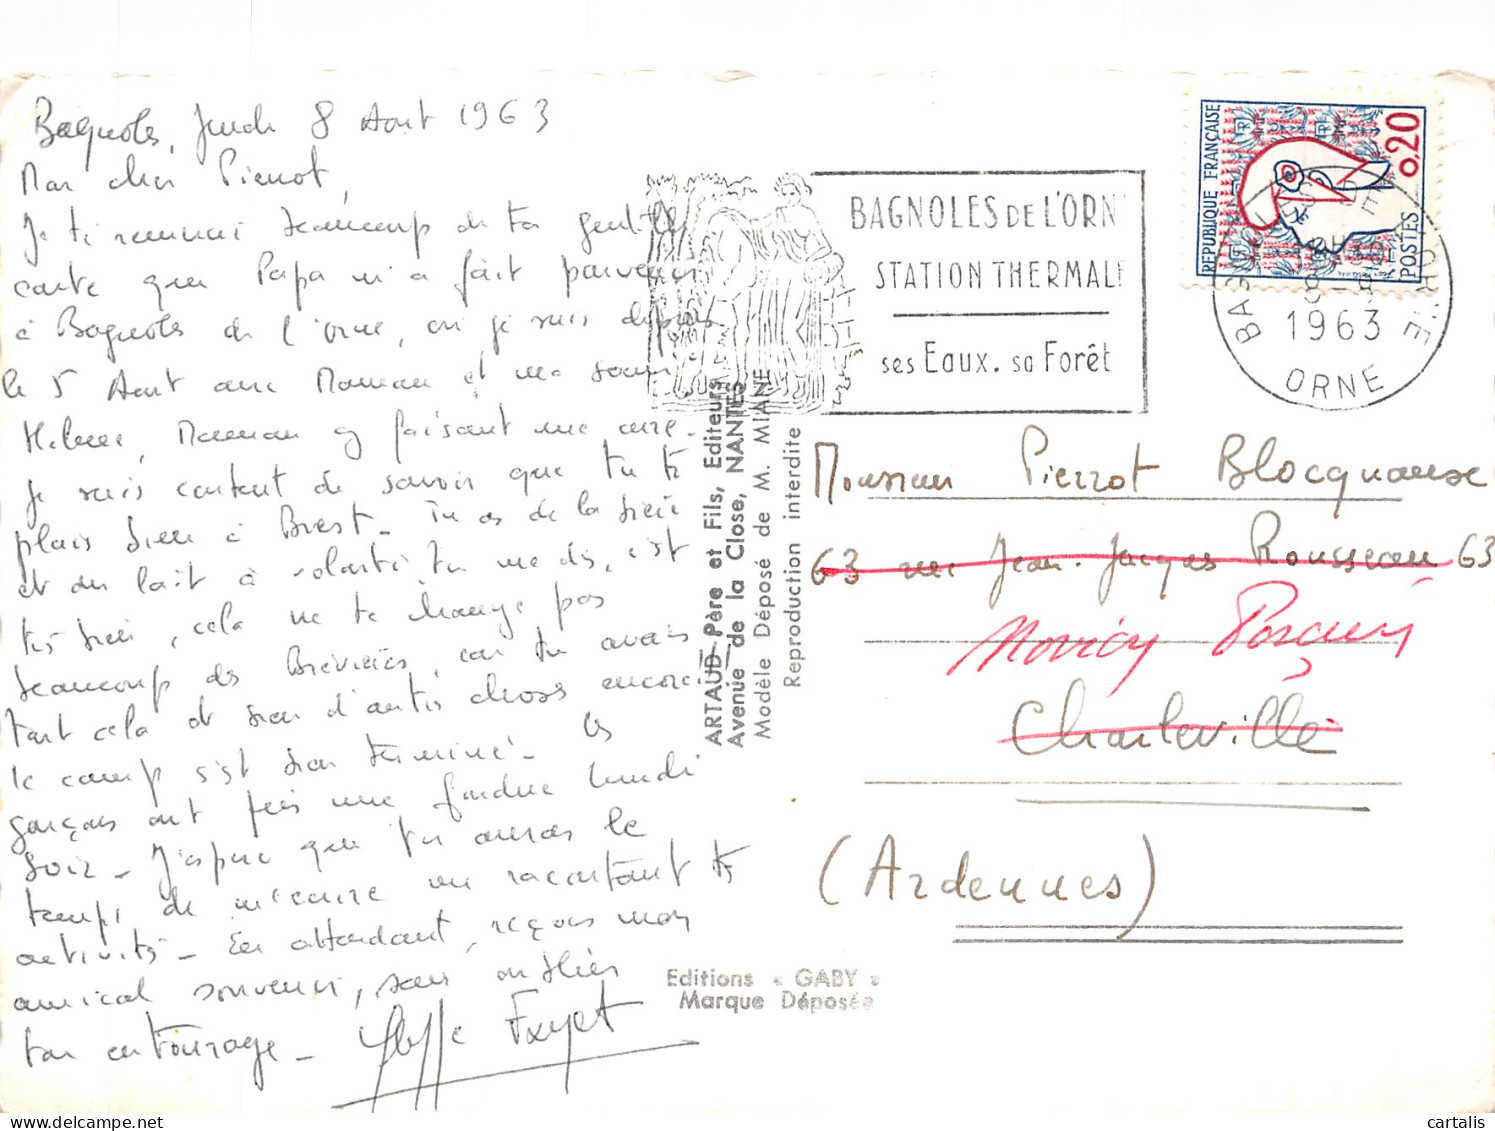 Bagnoles, Jeudi 8 Aout 1963
Mon cher Pierrot,
Je te remercie beaucoup de ta gentille
carte que Papa m'a fait parvenir
à Bagnoles de l'Orne, où je suis depuis
le 5 Aout avec Maman et ma soeur
Maman y faisant une cure.
Je suis content de savoir que tu te
plais bien à Brest. Tu as de la
et du lait à volonté tu me dis, c'est
très bien, cela ne te change pas
beaucoup des Brévières, car tu avais
tant cela et bien d'autres choses encore
le camp s'est bien terminé. Les
garçons ont fait une lundi
soir - J'espère que tu auras le
temps de m'écrire en racontant tes
activités - En attendant, reçois mon
amical souvenir, sans oublier
ton entourage -
Fayet
BAGNOLES DE L'ORN
STATION THERMALE
ses Eaux. sa Forêt
RÉPUBLIQUE FRANÇAISE
0,20
POSTES
BAGNOLES DE L'ORNE
1963
ORNE
ARTAUD Père et Fils, Editeurs
Avenue de la Close, NANTES
Modèle Déposé de M. MIANE
Reproduction interdite
Monsieur Pierrot Blocquaux
63 rue Jean-Jacques Rousseau 63
Charleville
(Ardennes)
Editions « GABY »
Marque Déposée
cartalis